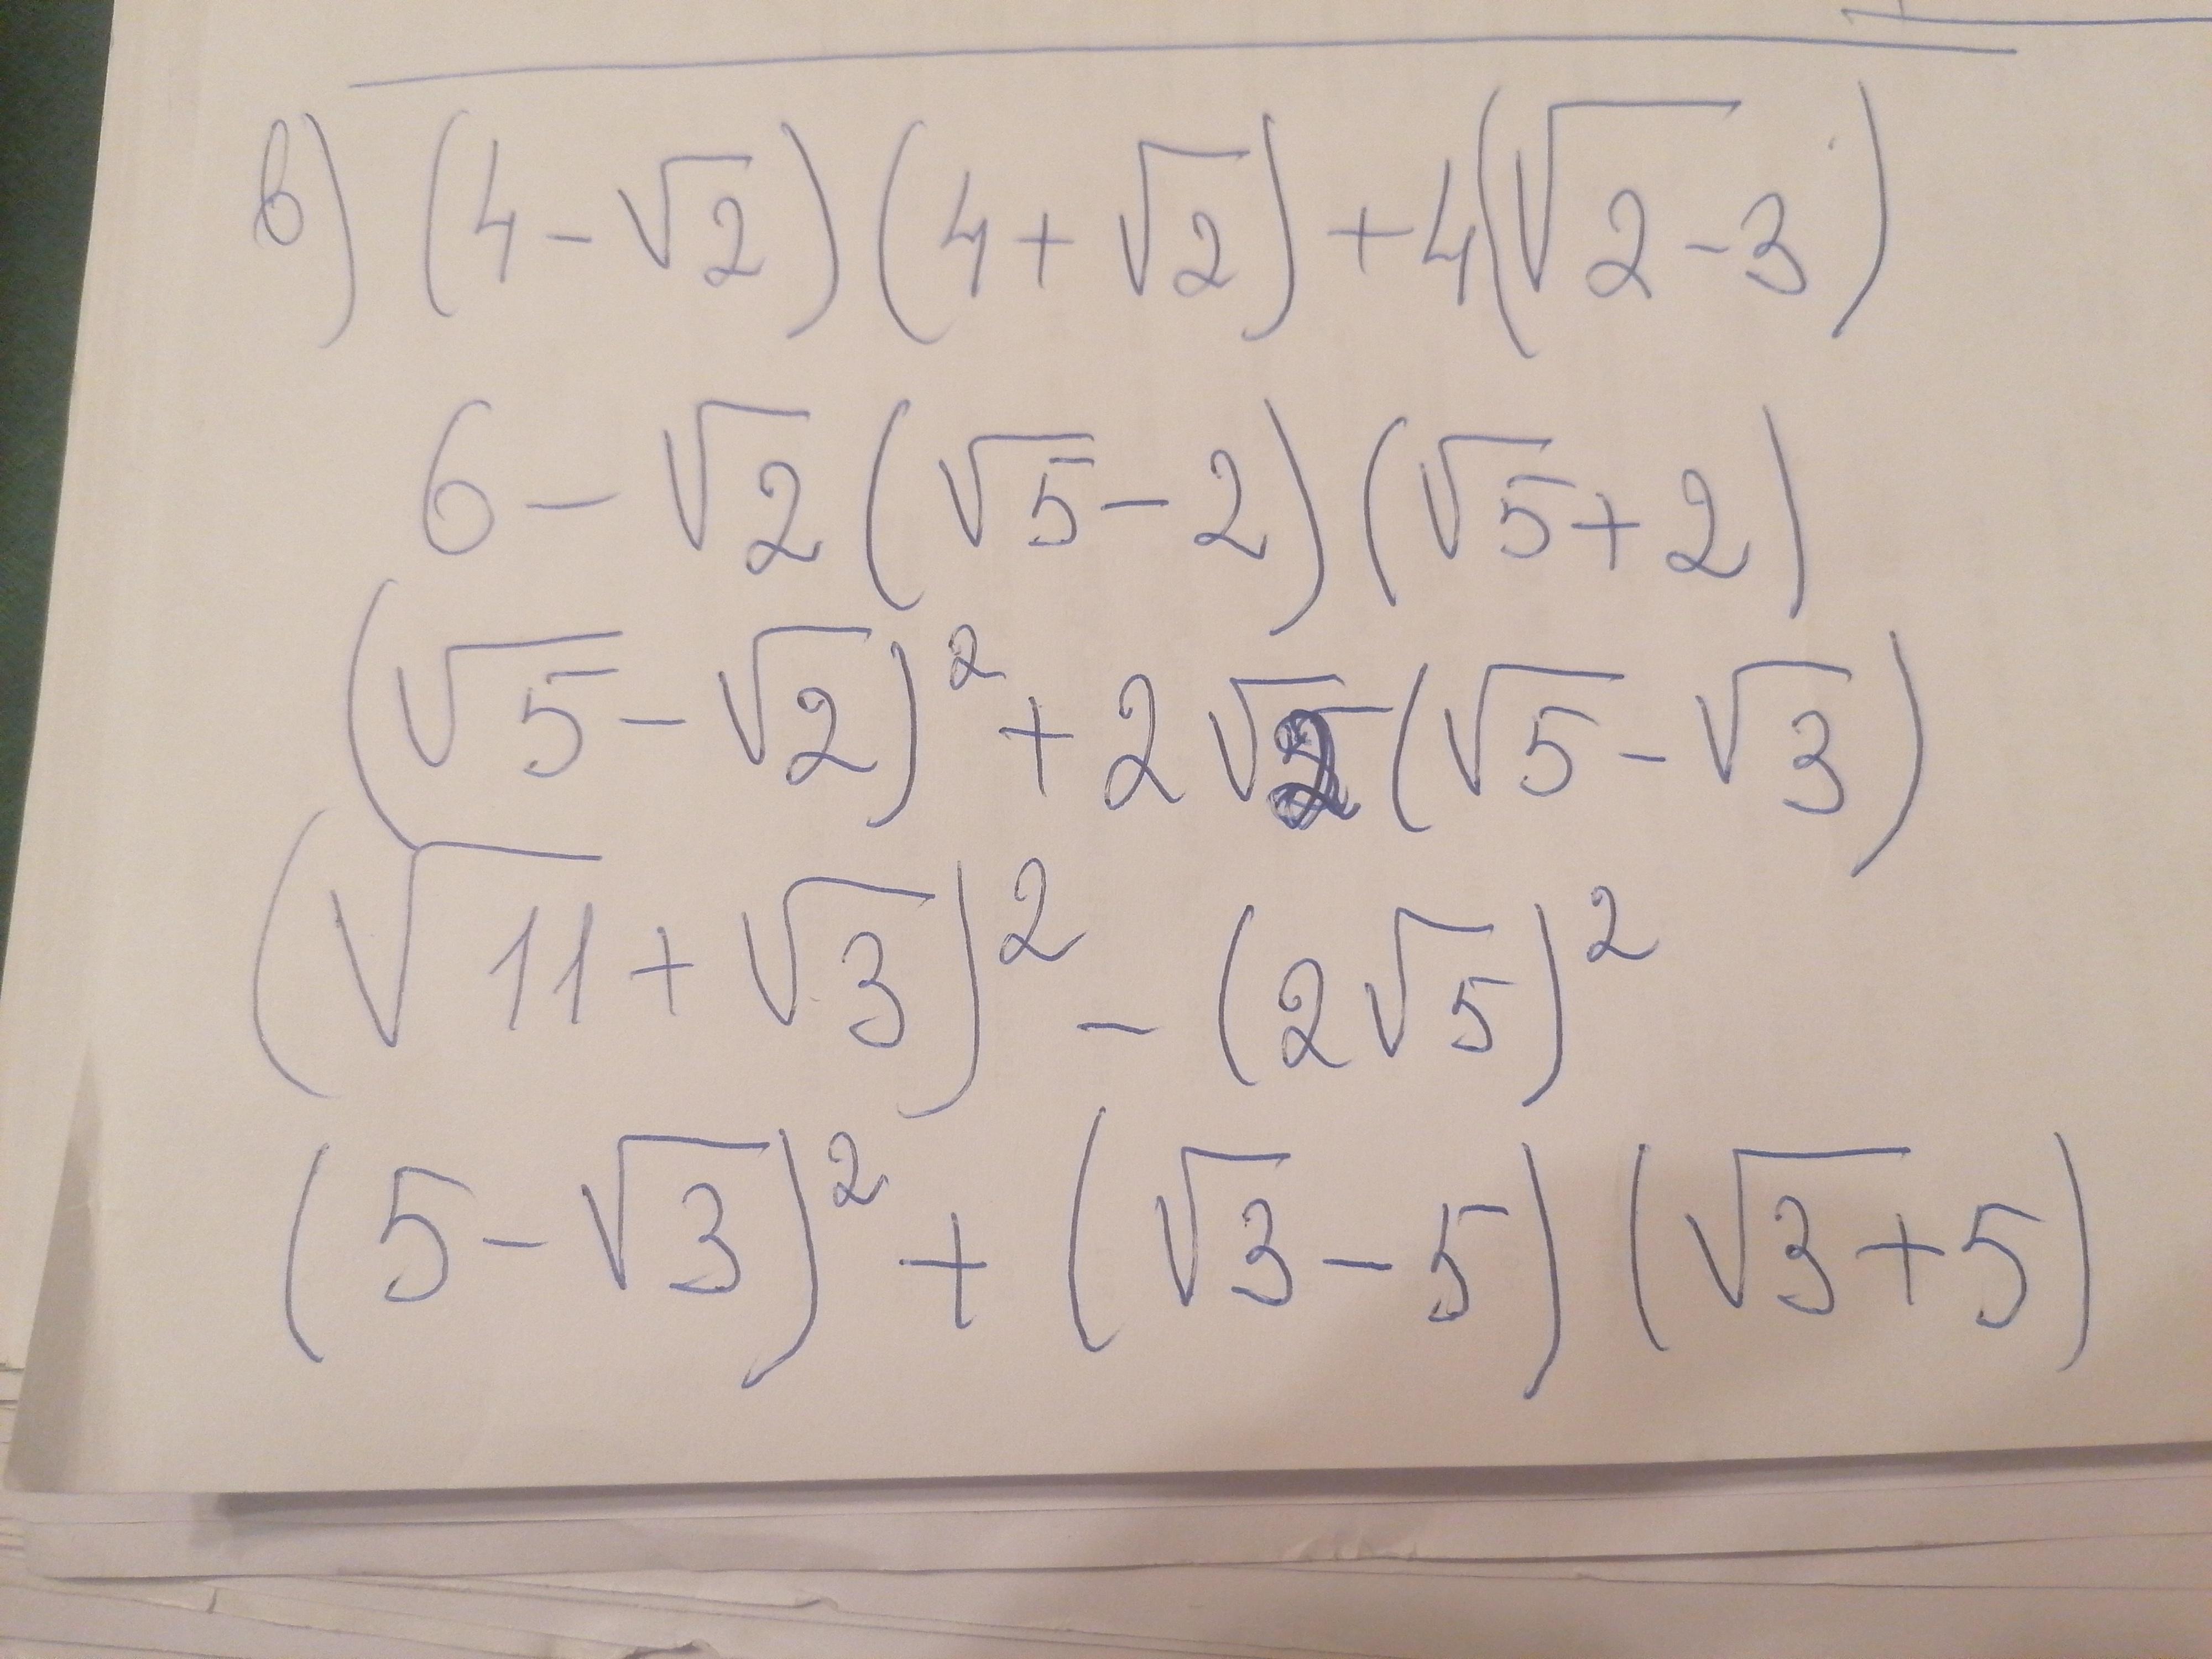 б) (4-√2)(4+√2)+4(√2-3)
6-√2(√5-2)(√5+2)
(√5-√2)²+2√2(√5-√3)
(√11+√3)²-(2√5)²
(5-√3)²+(√3-5)(√3+5)